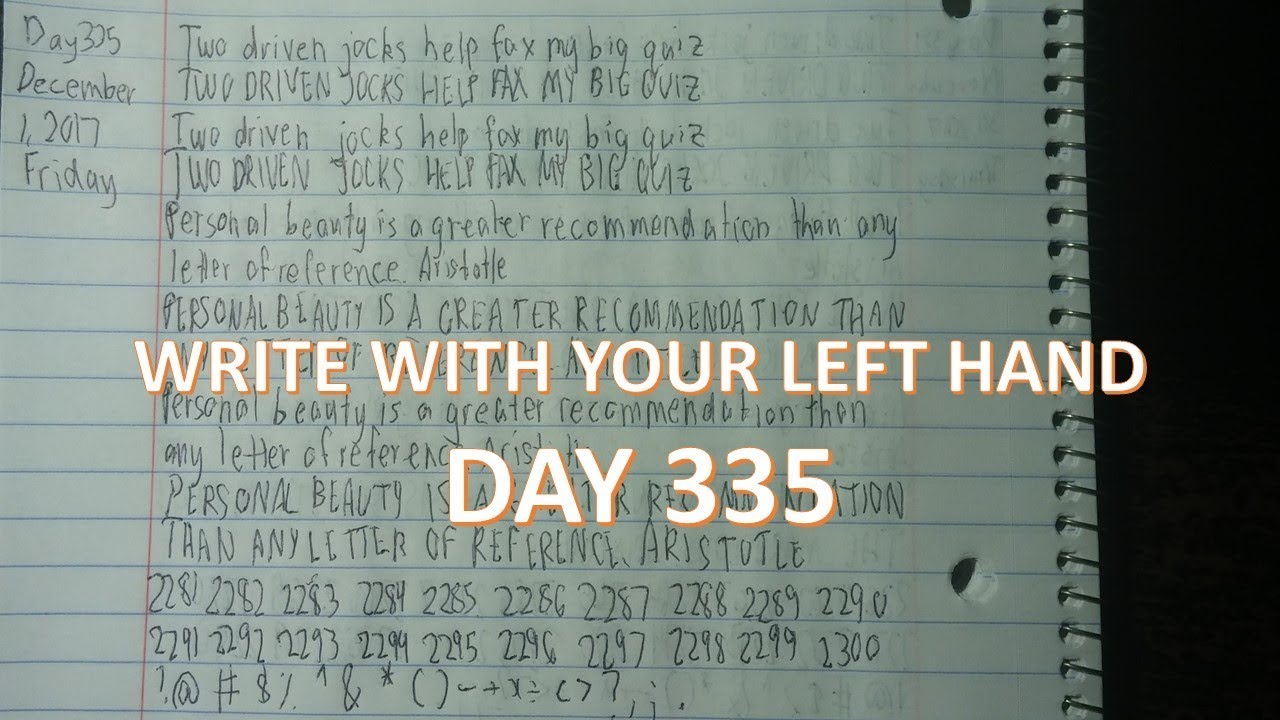 Day 335
December
1, 2017
Friday
Two driven jocks help fax my big quiz
TWO DRIVEN JOCKS HELP FAX MY BIG QUIZ
Two driven jocks help fax my big quiz
TWO DRIVEN JOCKS HELP FAX MY BIG QUIZ
Personal beauty is a greater recommendation than any
letter of reference. Aristotle
PERSONAL BEAUTY IS A GREATER RECOMMENDATION THAN
WRITE WITH YOUR LEFT HAND
Personal beauty is a greater recommendation than
any letter of reference
DAY 335
PERSONAL BEAUTY IS A
THAN ANY LETTER OF REFERENCE. ARISTOTLE
2281 2282 2283 2284 2285 2286 2287 2288 2289 2290
2291 2292 2293 2294 2295 2296 2297 2298 2299 2300
!@ # $ % ^ & * ( ) - + x ÷ < > ? , ; .